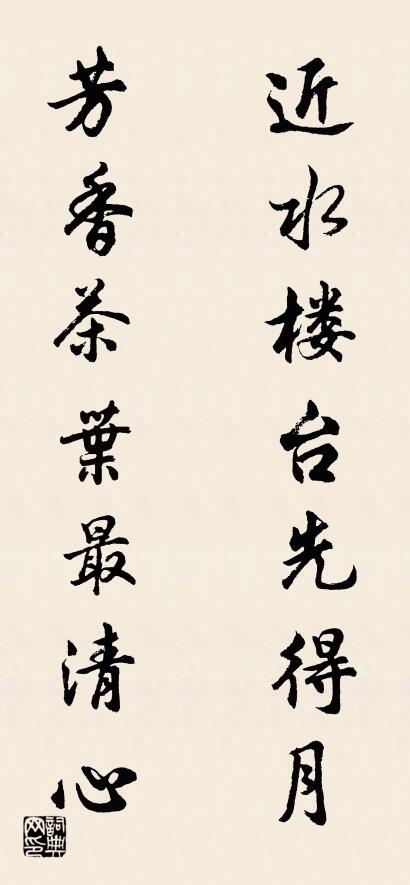 近水楼台先得月
芳香茶葉最清心
詞典网印